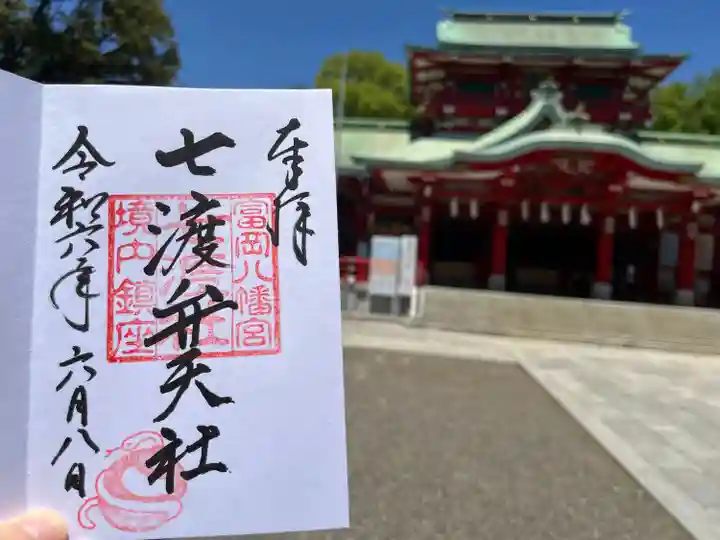 奉拝
七渡弁天社
富岡八幡宮
境内鎮座
令和六年
六月八日